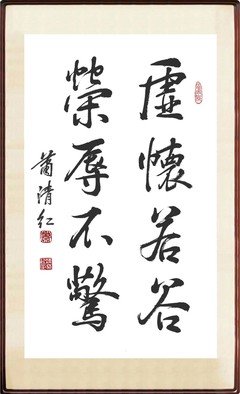 虛懷若谷
榮辱不驚
蕭清紅